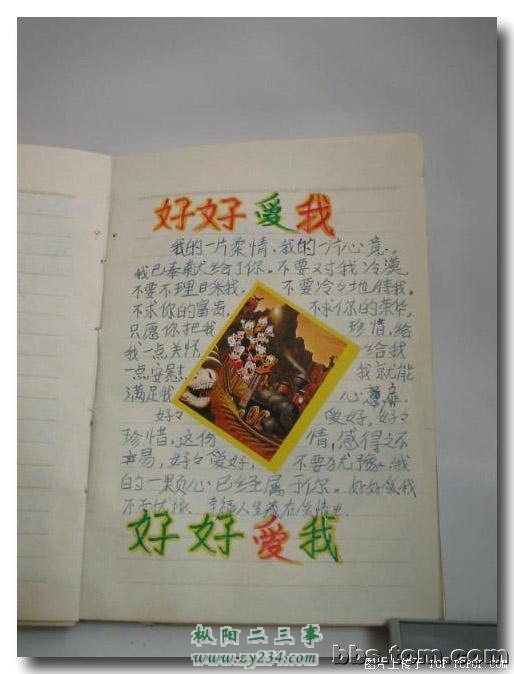 好好爱我
我的一片柔情、我的一片心意、
我已奉献给了你。不要对我冷漠
不要不理睬我, 不要冷冷地待我。
不求你的富贵, 不求你的荣华,
只愿你把我 珍惜,给
我一点关怀, 给我
一点安慰, 我就能
满足我 心
好々 爱好,好々
珍惜,这份 情,感得之不
易,好々爱好, 不要犹豫、我
的一颗心已经属于你。好好爱我
不要犹豫 幸福人生
好好爱我
枞阳二三事
www.zy234.com
bbs.tom.com
图片上传于 tof.tcfof.com